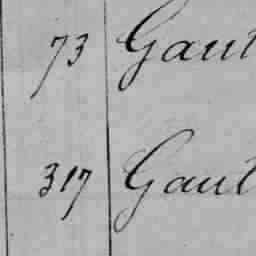 73 Gaut
317 Gaul